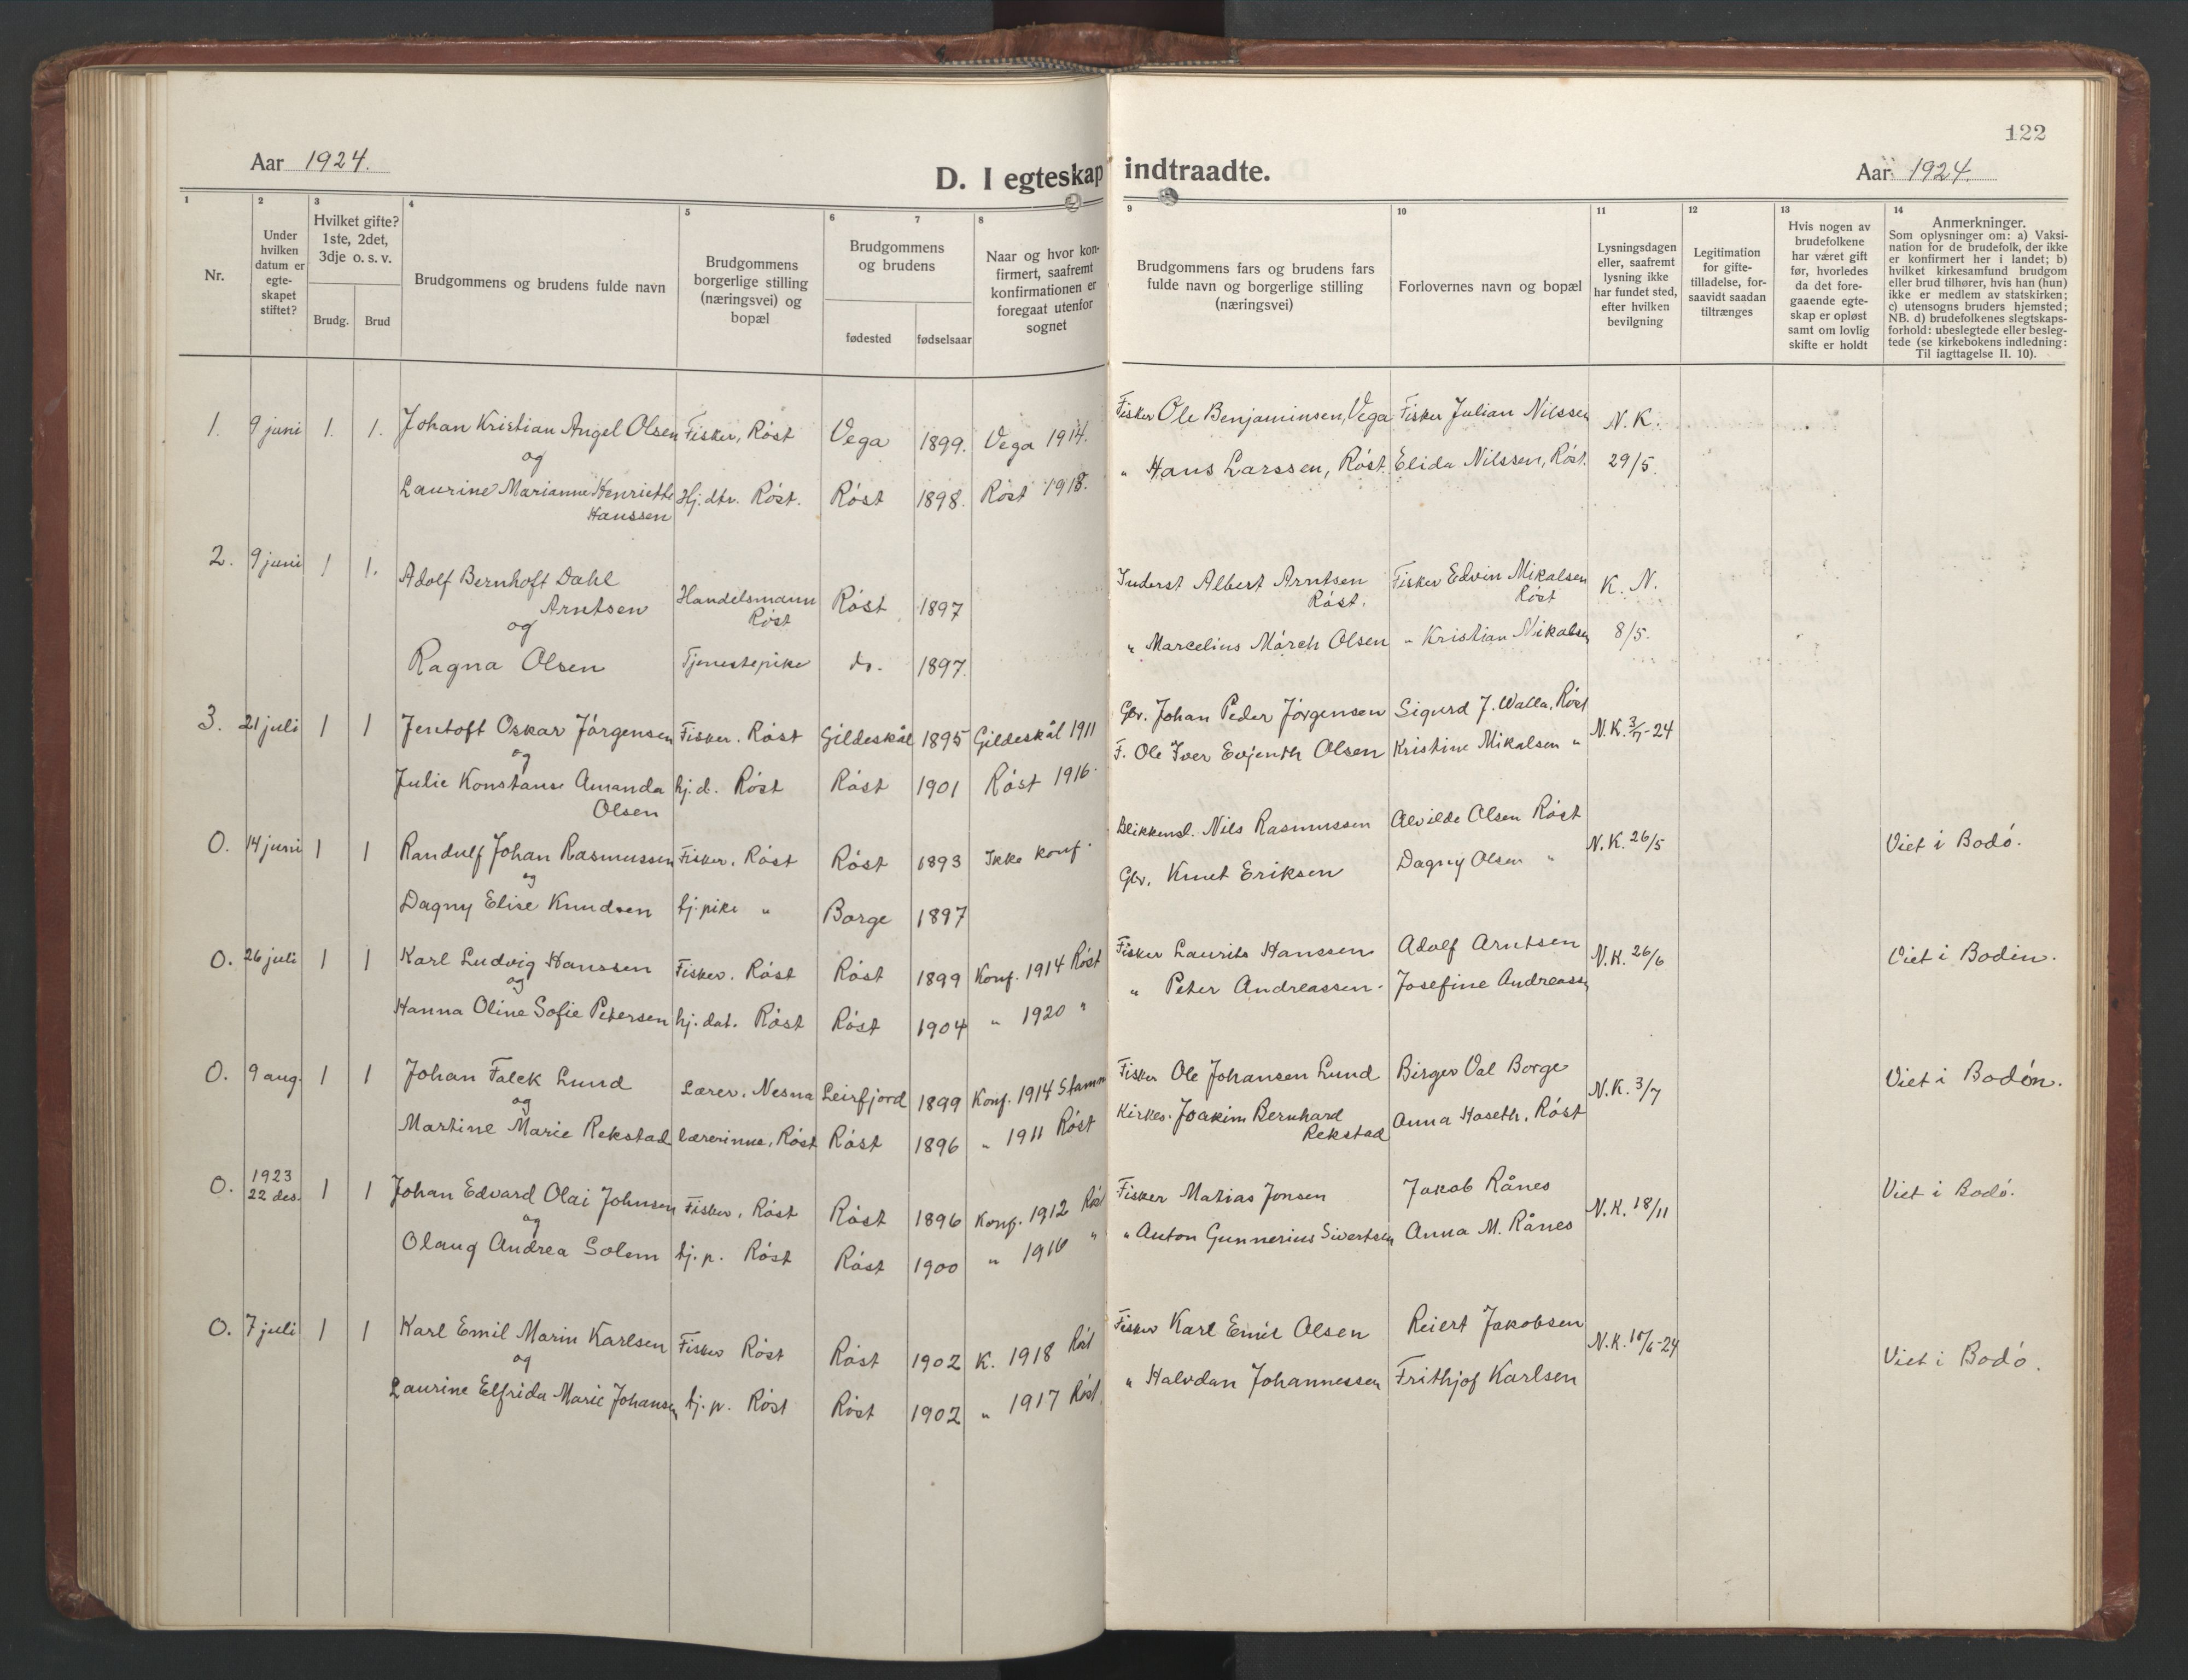 122
Aar 1924.
D. I egteskap indtraadte.
Aar 1924.
1
2 Under hvilken datum er egte-skapet stiftet?
3 Hvilket gifte? 1ste, 2det, 3dje o. s. v.
4
5
6
7
8
Nr.
Brudg. Brud
Brudgommens og brudens fulde navn
Brudgommens borgerlige stilling (næringsvei) og bopæl
Brudgommens og brudens
fødested
fødselsaar
Naar og hvor kon-
firmert, saafremt
konfirmationen er
foregaat utenfor
sognet
9
Brudgommens fars og brudens fars
fulde navn og borgerlige stilling
(næringsvei)
10
Forlovernes navn og bopæl
11
Lysningsdagen
eller, saafremt
lysning ikke
har fundet sted,
efter hvilken
bevilgning
12
Legitimation
for gifte-
tilladelse, for-
saavidt saadan
tiltrænges
13
Hvis nogen av
brudefolkene
har været gift
før, hvorledes
da det fore-
gaaende egte-
skap er opløst
samt om lovlig
skifte er holdt
14
Anmerkninger.
Som oplysninger om: a) Vaksi-
nation for de brudefolk, der ikke
er konfirmert her i landet; b)
hvilket kirkesamfund brudgom
eller brud tilhører, hvis han (hun)
ikke er medlem av statskirken;
c) utensogns bruders hjemsted;
NB. d) brudefolkenes slegtskaps-
forhold: ubeslegtede eller besleg-
tede (se kirkebokens indledning:
Til iagttagelse II. 10).
1. 9 juni 1. 1. Johan Kristian Angel Olsen Fisker, Røst Vega 1899. Vega 1914. Fisker Ole Benjaminsen, Vega Fisker Julian Nilssen N. K.
og
Laurine Marianne Henriette Hj. dtr. Røst. Røst 1898. Røst 1918. " Hans Larssen, Røst. Elida Nilssen, Røst. 29/5.
Hanssen
2. 9 juni 1 1. Adolf Bernhoft Dahl
Arntsen Handelsmann Røst 1897 Inderst Albert Arntsen Fisker Edvin Mikalsen K. N.
Røst Røst. Røst
og
Ragna Olsen Tjenestepike do. 1897. " Marcelius Mørch Olsen " Kristian Mikalsen 8/5.
3. 21 juli 1 1 Jentoft Oskar Jørgensen Fisker. Røst Gildeskål 1895 Gildeskål 1911 Gbr. Johan Peder Jørgensen Sigurd J. Walla, Røst N. K. 3/7-24
og
Julie Konstanse Amanda hj. d. Røst Røst 1901 Røst 1916. F. Ole Iver Evjenth Olsen Kristine Mikalsen "
Olsen
0. 14 juni 1 1 Randulf Johan Rasmussen Fisker, Røst Røst 1893 Ikke konf. Blikkensl. Nils Rasmussen Alvilde Olsen Røst N. K. 26/5 Viet i Bodø.
og
Dagny Elise Knudsen tj. pike " Borge 1897 Gbr. Knut Eriksen Dagny Olsen "
0. 26 juli 1 1 Karl Ludvig Hanssen Fisker. Røst Røst 1899 Konf. 1914 Røst Fisker Laurits Hanssen Adolf Arntsen N. K. 26/6 Viet i Bodin.
og
Hanna Oline Sofie Petersen hj. dat. Røst Røst 1904 " 1920 " " Peter Andreassen. Josefine Andreassn
0. 9 aug. 1 1 Johan Falck Lund Lærer. Nesna Leirfjord 1899 Konf. 1914 Stamn Fisker Ole Johansen Lund Birger Val Borge N. K. 3/7 Viet i Bodøn.
og
Martine Marie Rekstad lærerinne, Røst Røst 1896 " 1911 Røst Kirkes. Joakim Bernhard Anna Haseth, Røst
Rekstad
0. 1923
22 des. 1 1 Johan Edvard Olai Johnsen Fisker, Røst Røst 1896 Konf. 1912 Røst Fisker Matias Jonsen Jakob Rånes N. K. 18/11 Viet i Bodø.
og
Olaug Andrea Solem tj. p. Røst Røst 1900 " 1916 " " Anton Gunnerius Sivertsen Anna M. Rånes
0. 7 juli 1 1 Karl Emil Marin Karlsen Fisker Røst Røst 1902 K. 1918 Røst Fisker Karl Emil Olsen Reiert Jakobsen Viet i Bodø.
og
Laurine Elfrida Marie Johansen tj. p. Røst Røst 1902 " 1917 Røst. " Halvdan Johannessen Frithjof Karlsen